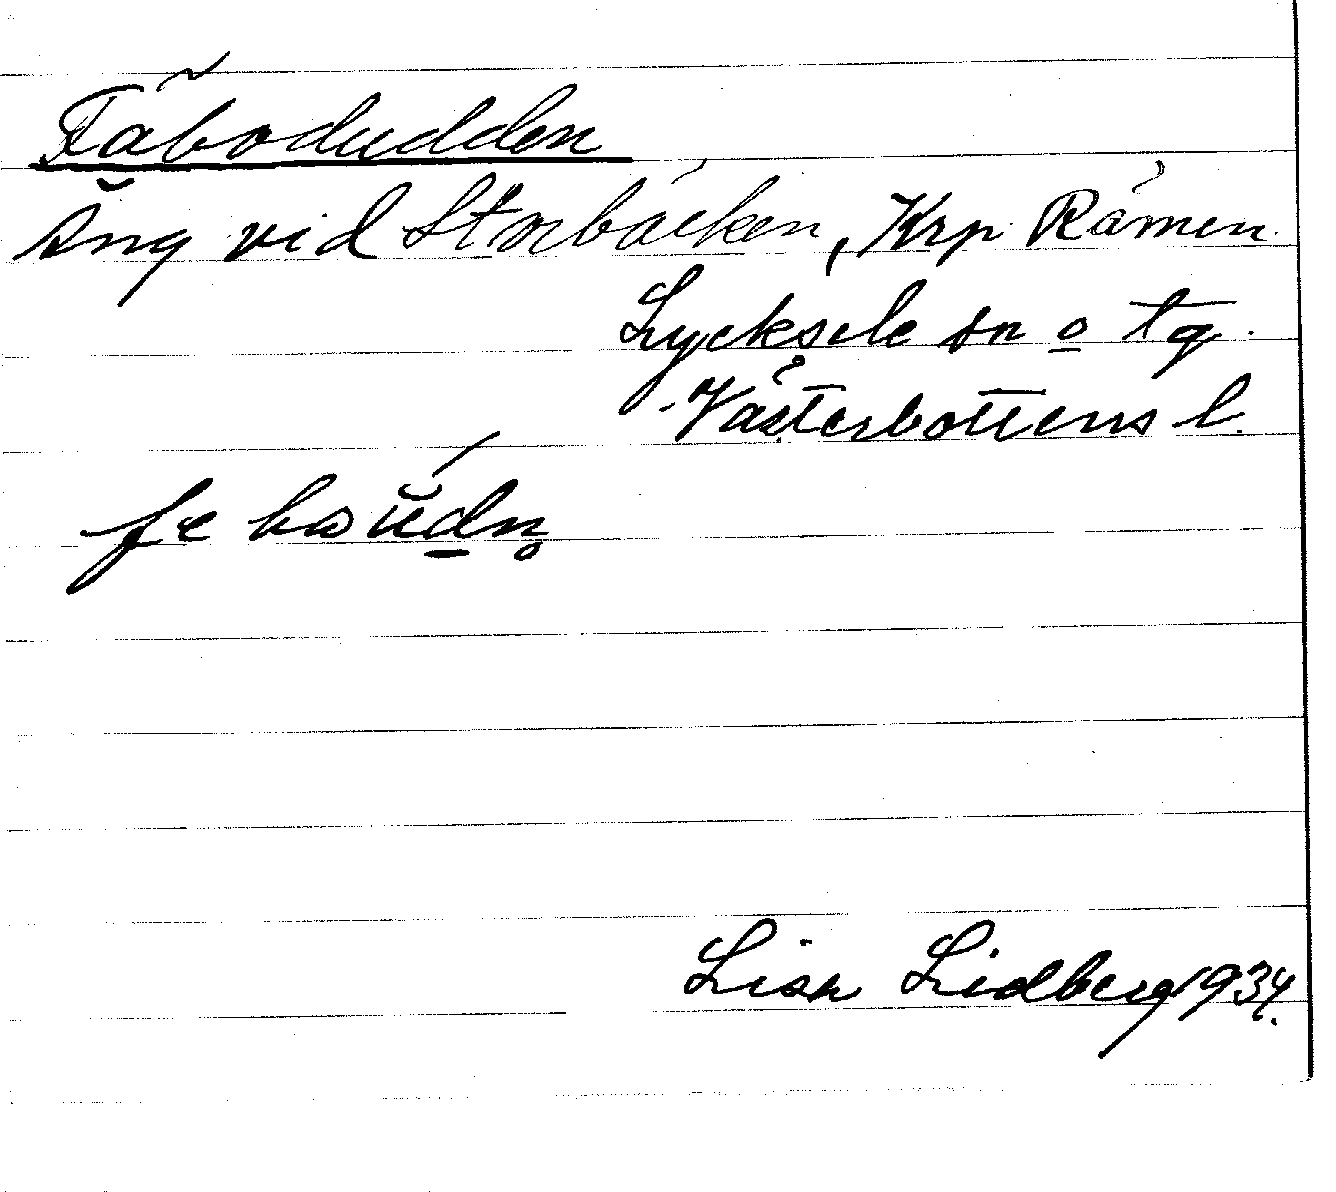 Fäbodudden
Äng vid Storbäcken, Krp Råmen
Lycksele sn o tg.
Västerbottens l.
Lisa Lidberg 1934.